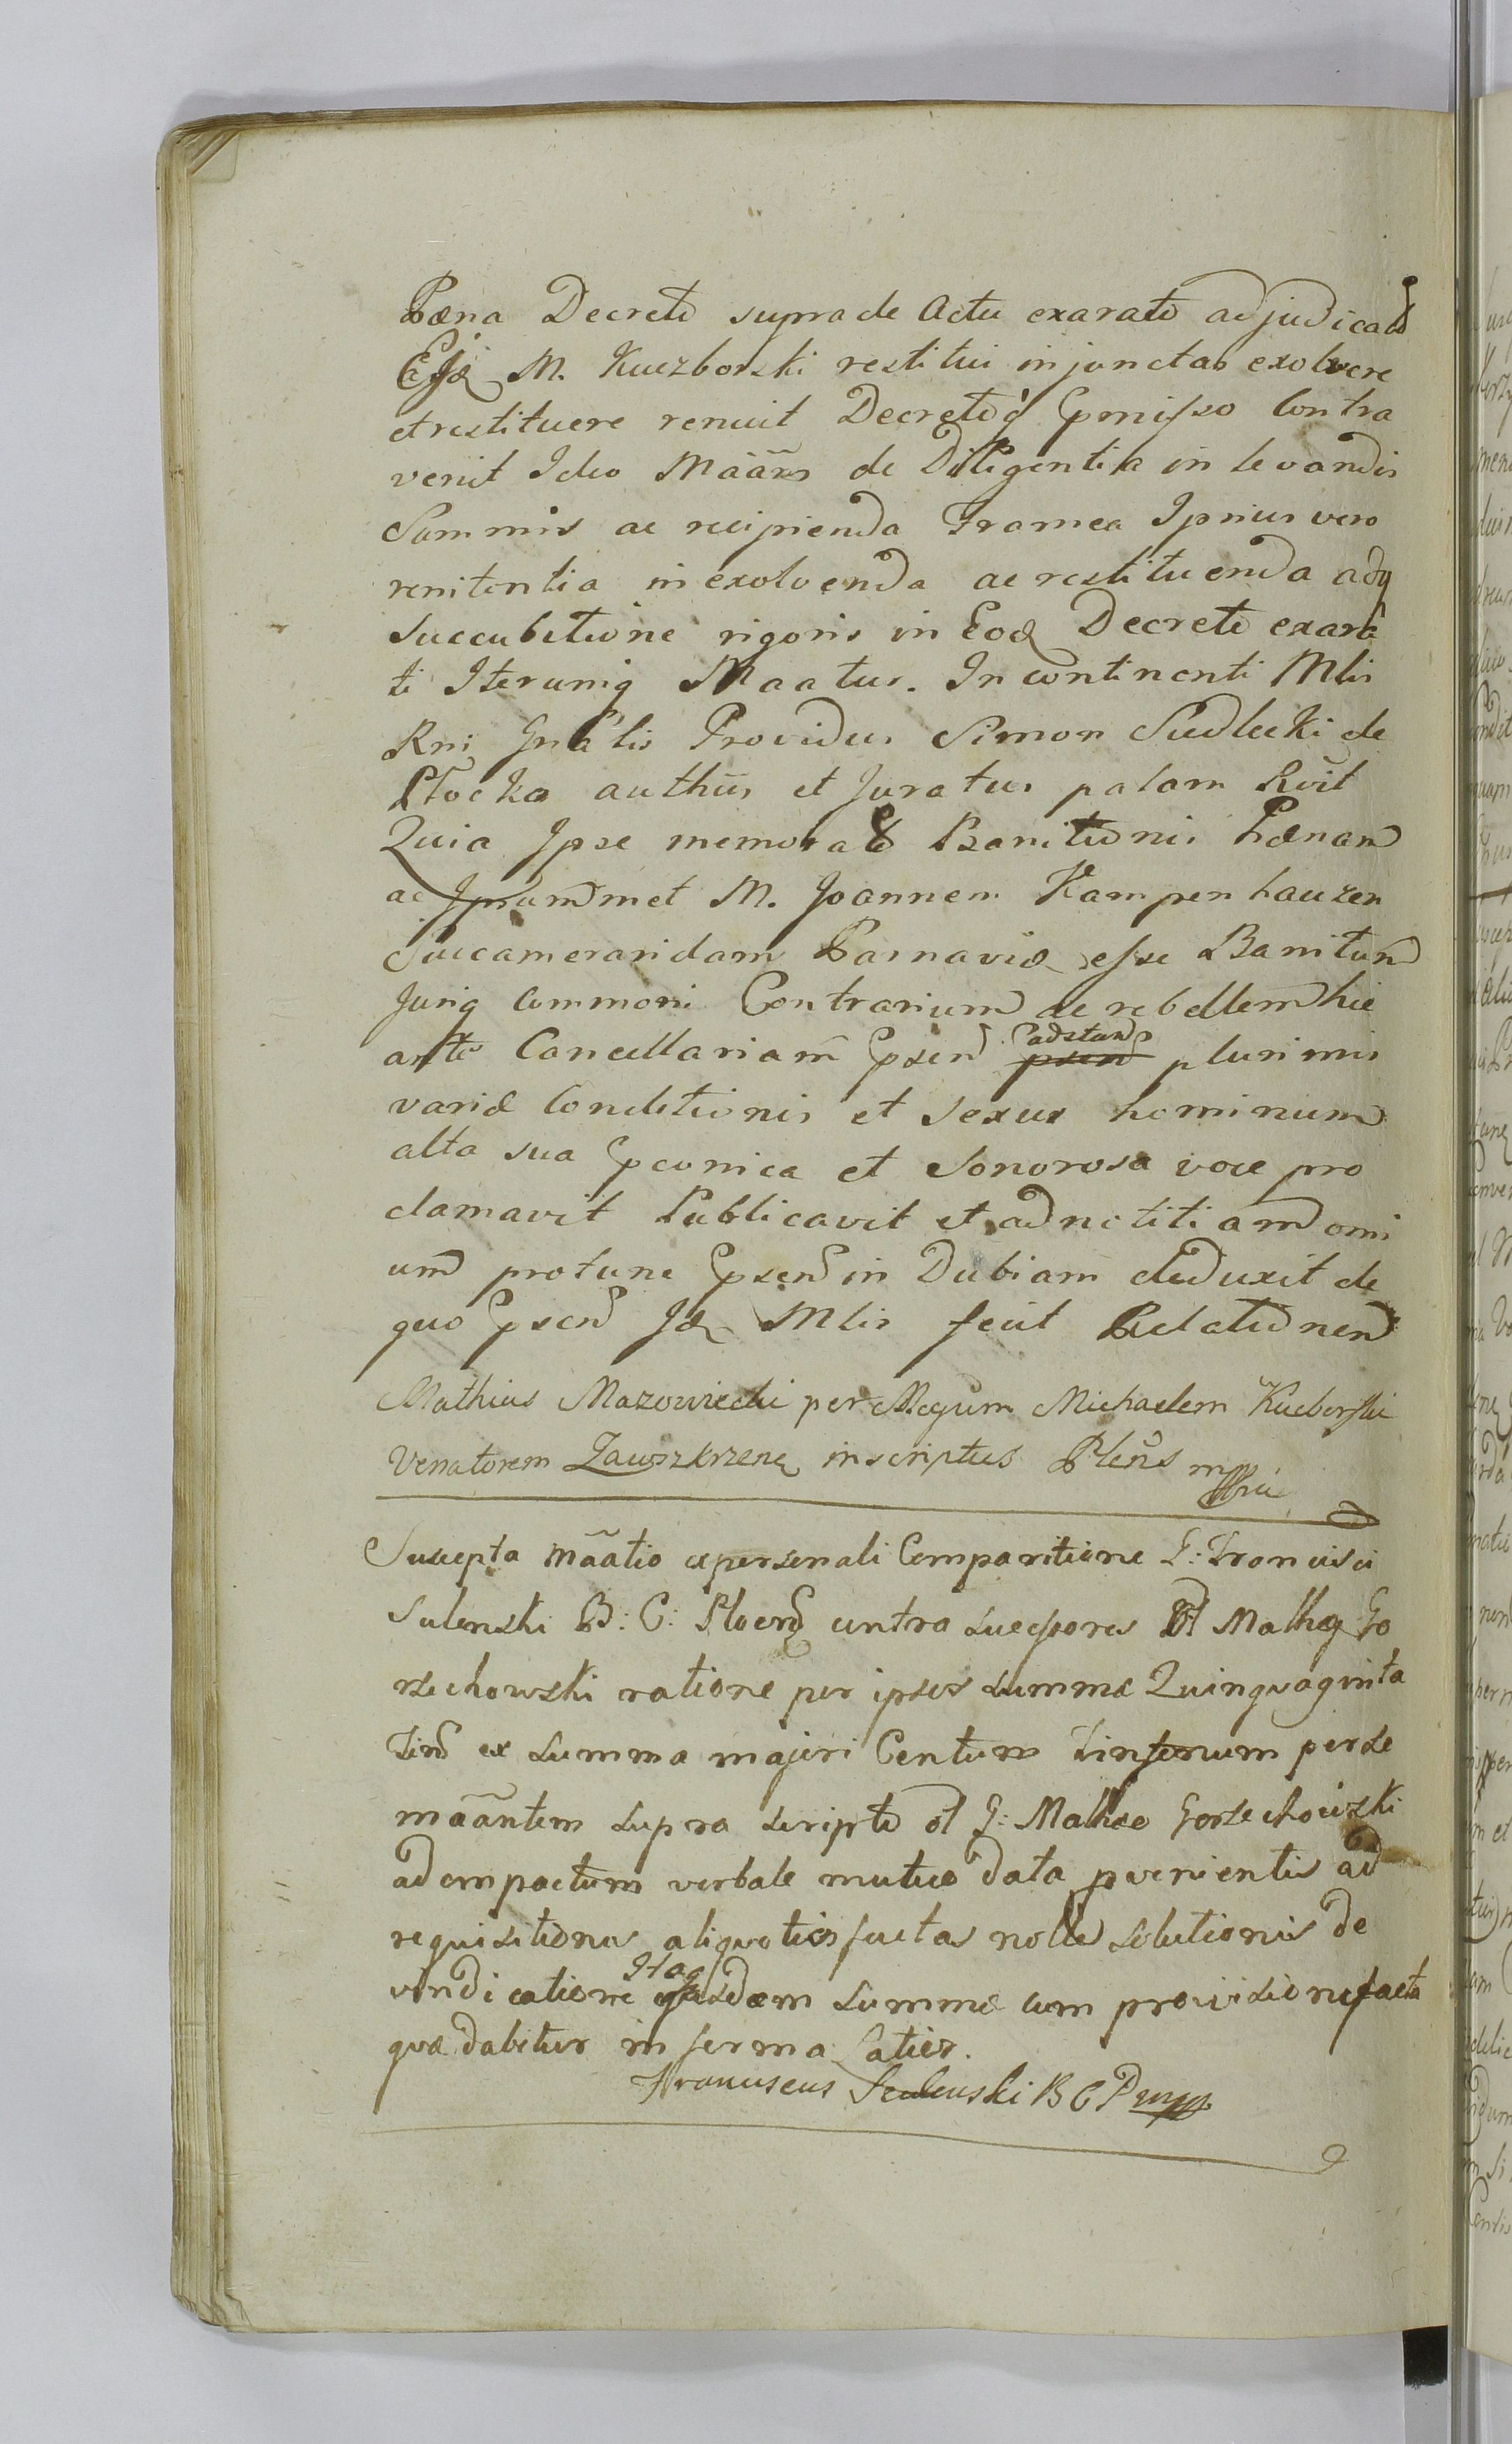 Pæna Decreto supra de Actu exarato adjudicato
M. Kuczborski restitui injunctas exolvere
et restituere renuit Decretoq́ Ꝑmisso Contra
venit Ideo Mããns de Diligentia in levandis
Summis ac recipienda Framea Ipsius vero
renitentia in exolvenda ac restituenda adq
succubitione rigoris in Eod Decreto exara
ti Iterumq Maatur. In continenti Mlis
Rni Gnãlis Providus Simon Siedlecki de
Płocko authũs et Juratus palam Rvit
Quia Ipse memorato Banitionis Pænam
ac Ipsummet M. Joannem Kampenhauzen
Succameraridam Parnaviæ esse Banitum
Juriq Commoni Contrarium ac rebellem hic
ante Cancellariam Ꝑsen adstan plurimis
variæ Conditionis et sexus hominum
alta sua Ꝑconica et Sonorosa voce pro
clamavit Publicavit et ad notitiam omi
um protunc Ꝑsen in Dubiam deduxit de
quo Ꝑsen Id Mlis fecit Relationem
Mathias Mazowiecki per Mgcum Michaelem Kucborski
Venatorem Zawszkrzene inscriptus Plens mppria
Suscepta mããtio ex personali Comparitione G: Francisci
Sulenski B: C: Plocen contra successores ol Mathæ Go
rzechowski ratione per ipsos summæ Quinquaginta
Tin ex summa majori Centum Tinforum per se
mããntem supra scripto ol G: Mathæo Gorzechowski
ad compactum verbale mutuo data pvenientis ad
requisitiones aliquoties factas nolle solutionis de
vindicatione Itaq ejusdem summæ cum provisione facta
quæ dabitur in forma Latior.
Franciscus Sulenski B C P mpp.